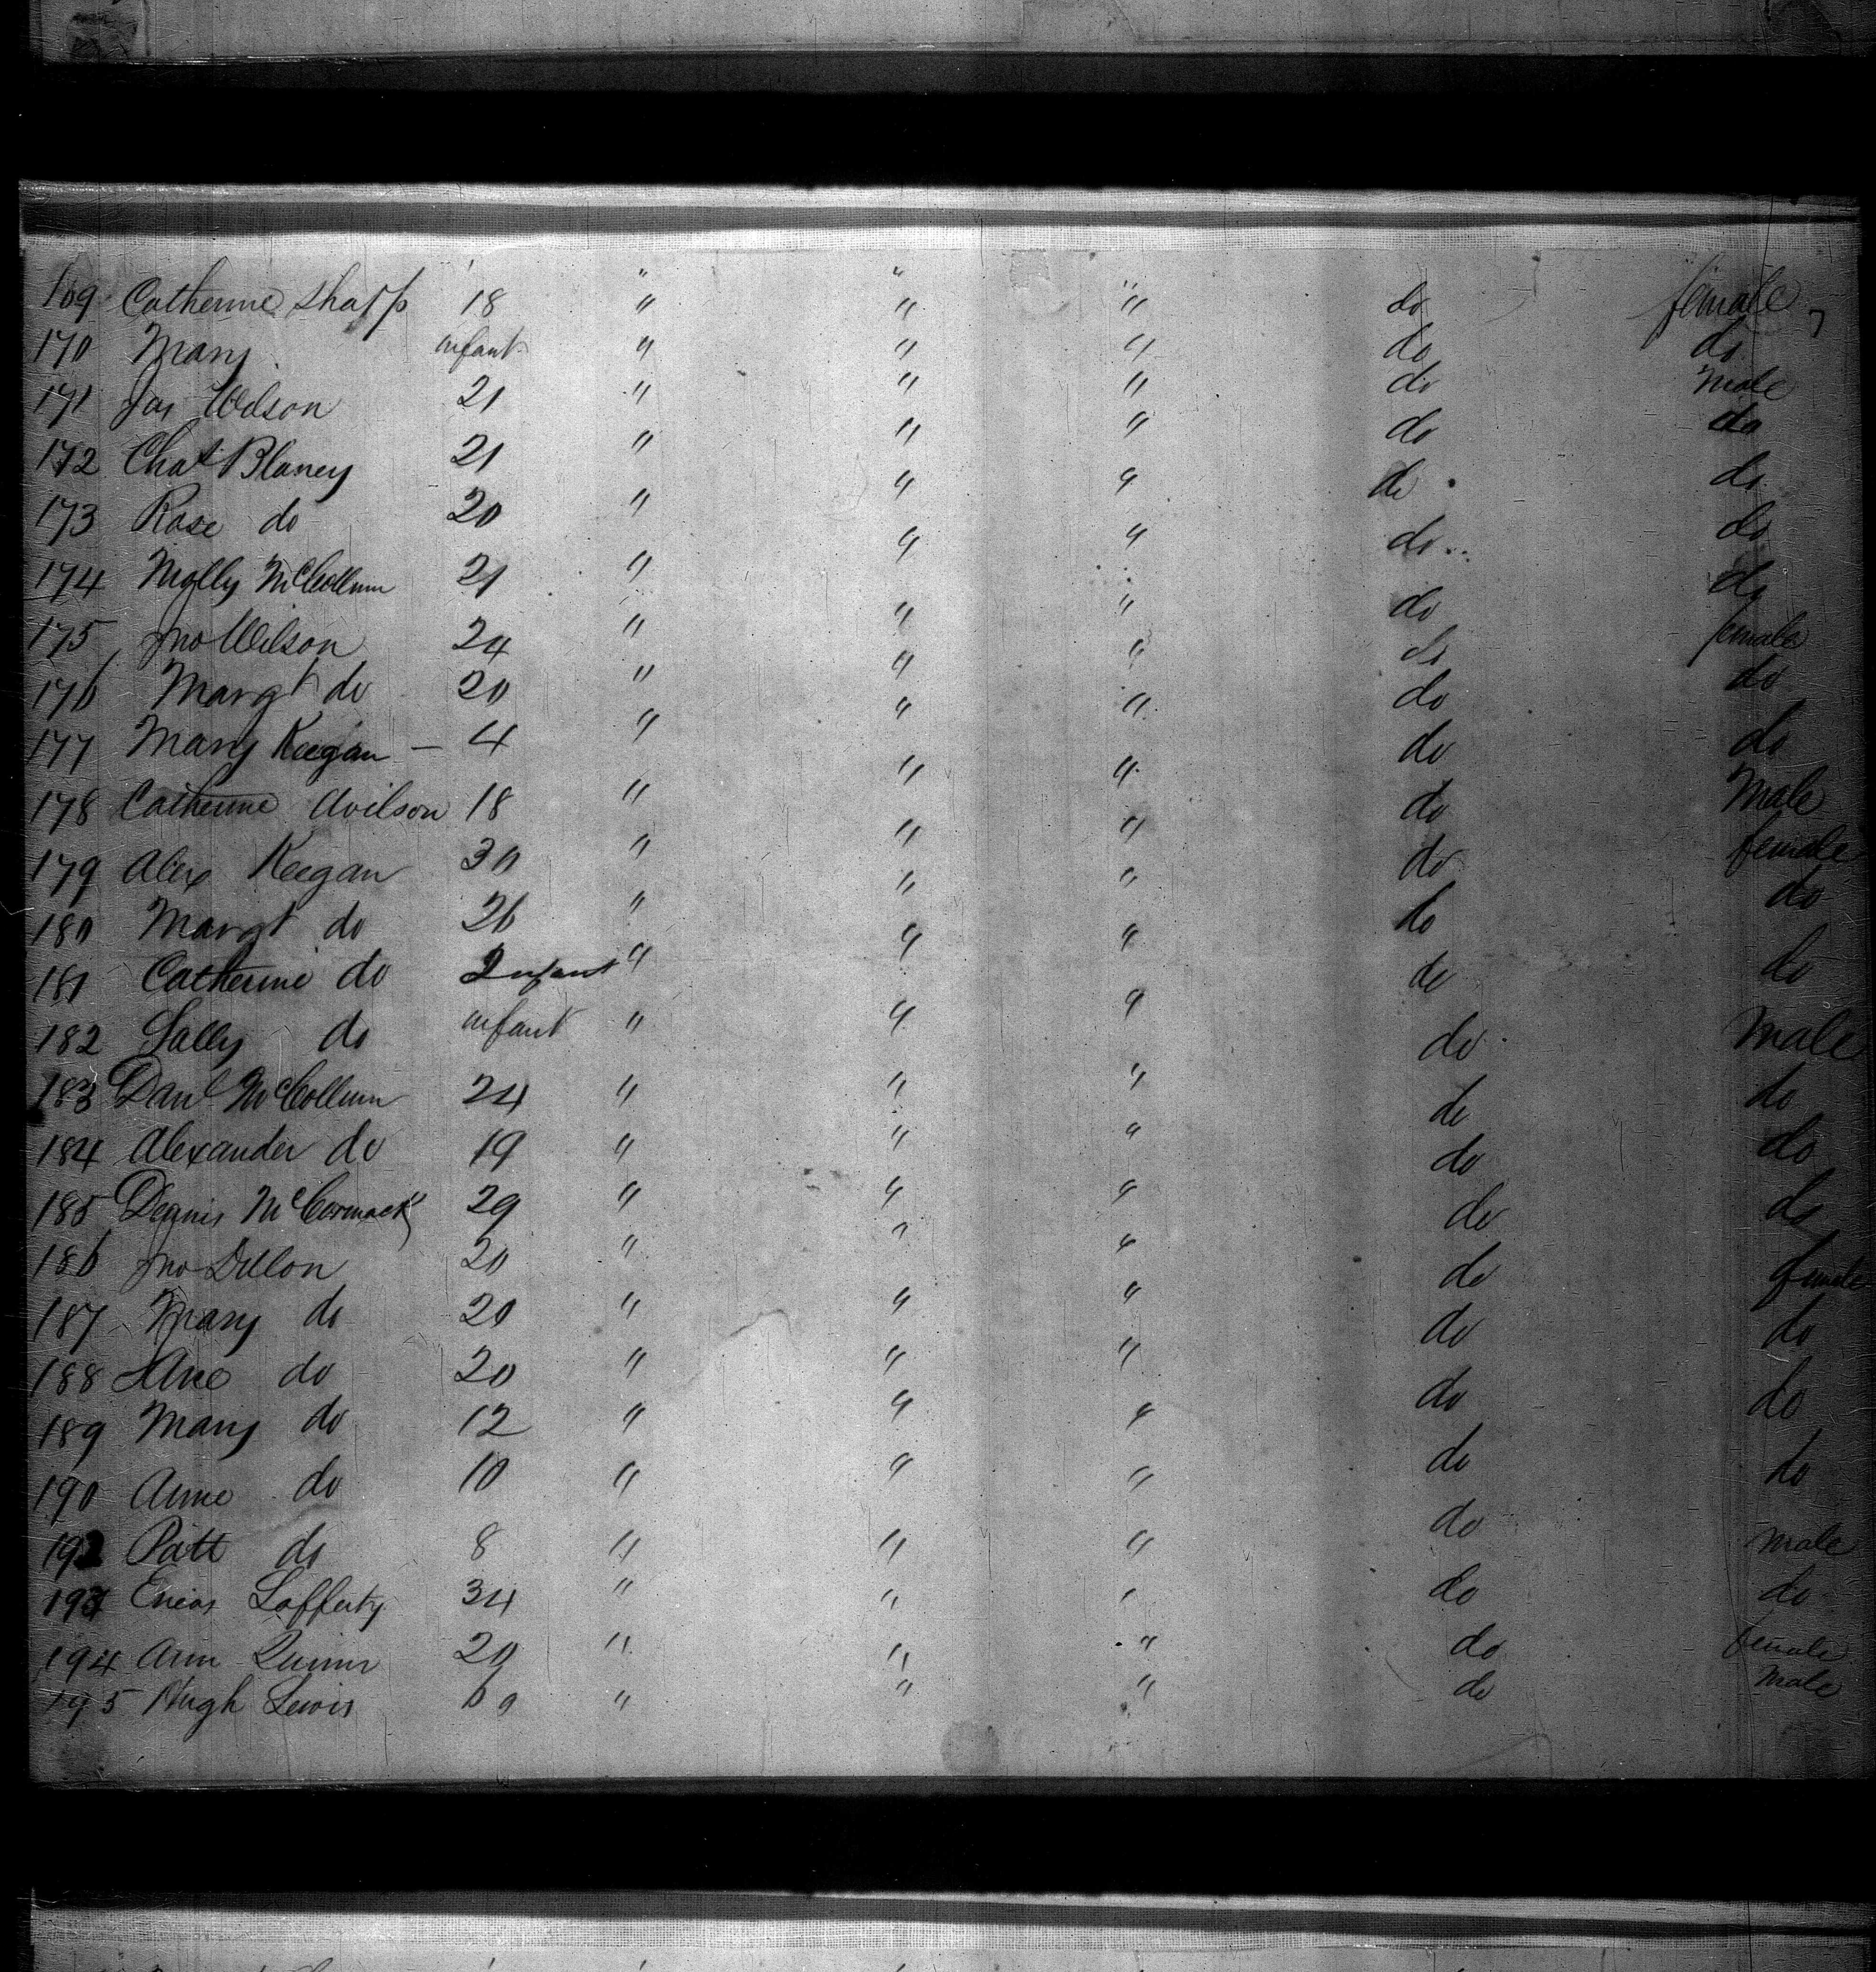 169 Catherine Sharp 18 " " " do female
170 Mary infant " " " do do
171 Jas Wilson 21 " " " do male
172 Chas Blaney 21 " " " do do
173 Rose do 20 " " " do do
174 Molly McCollum 21 " " " do do
175 Jno Wilson 24 " " " do do
176 Margt do 20 " " " do female
177 Mary Keegan — 4 " " " do do
178 Catherine Wilson 18 " " " do do
179 Alex Keegan 30 " " " do Male
180 Margt do 26 " " " do female
181 Catherine do 2 infant " " " do do
182 Sally do infant " " " do do
183 Danl McCollum 24 " " " do Male
184 Alexander do 19 " " " do do
185 Dennis McCormack 29 " " " do do
186 Jno Dillon 20 " " " do do
187 Mary do 20 " " " do female
188 Ane do 20 " " " do do
189 Mary do 12 " " " do do
190 Anne do 10 " " " do do
192 Patt do 8 " " " do male
193 Eneas Lafferty 34 " " " do do
194 Ann Quinn 20 " " " do female
195 Hugh Lewis " " " do male